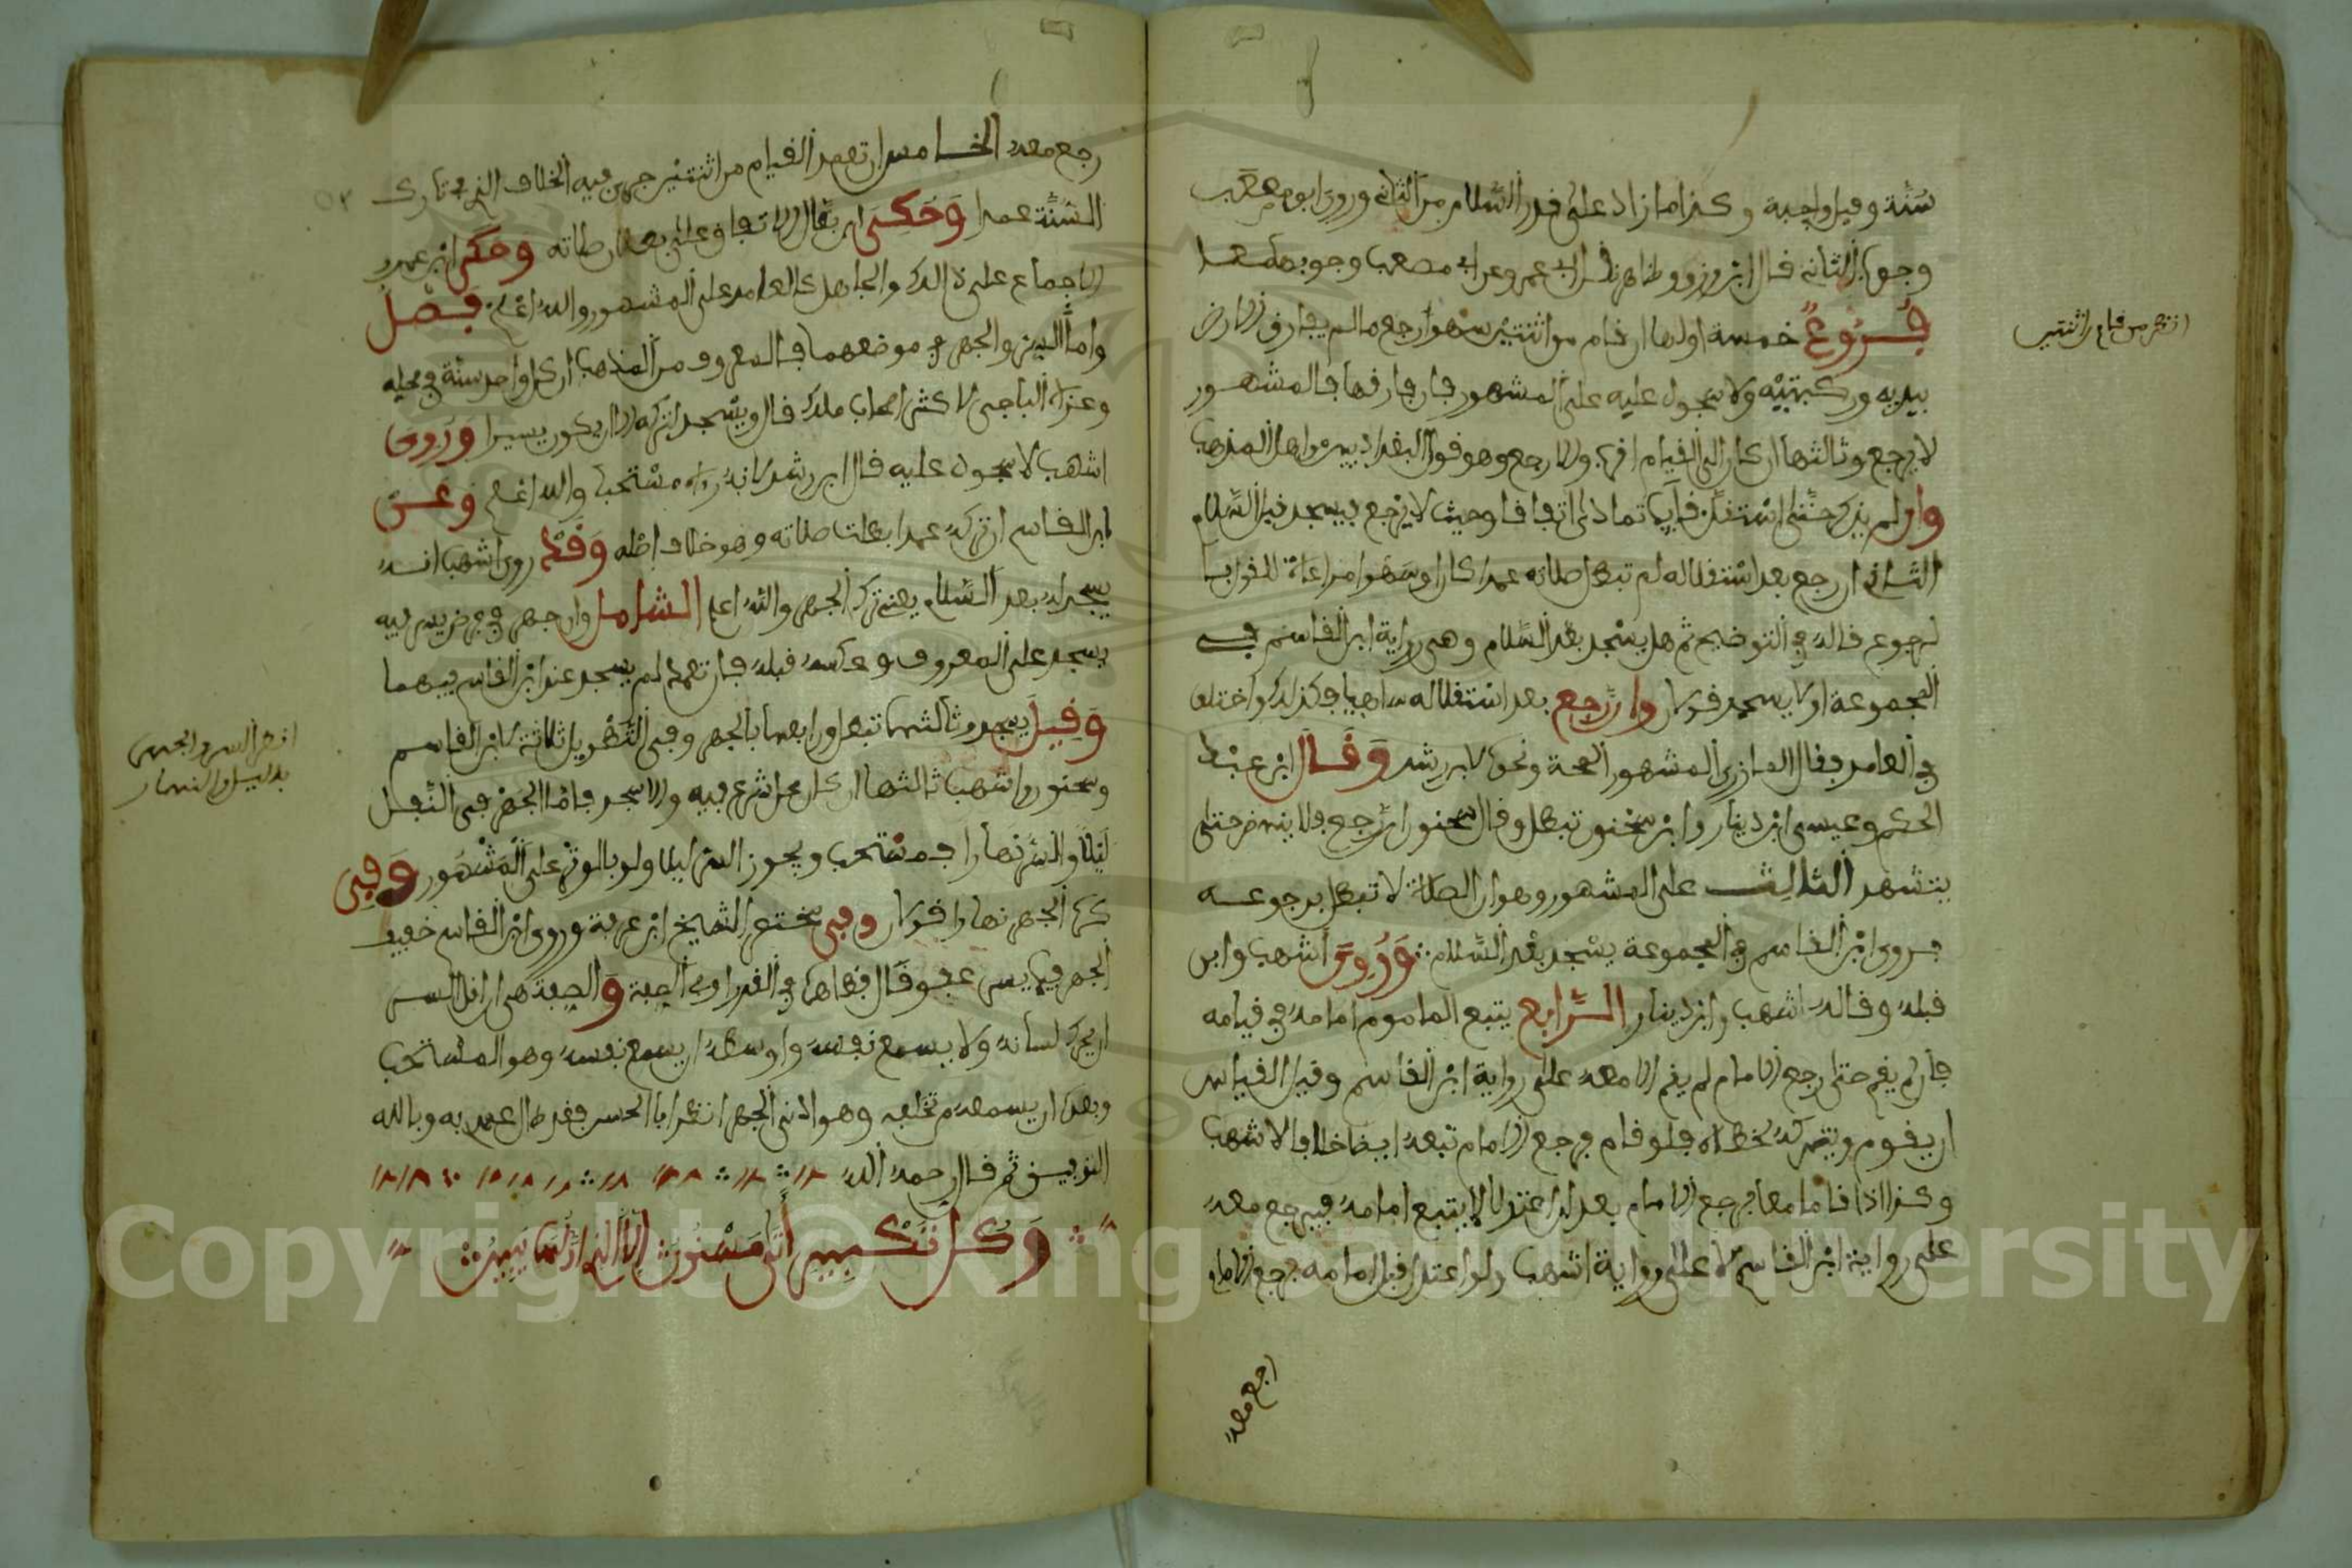 سنة وقيل واجبة وكذا ما زاد على قدر السلام من الثاني وروى ابو مصعب
وجوب الثانية قال ابن زرقون وظاهر نقل ابي عمر وعن ابي مصعب وجوبهما معا
فروع خمسة اولها ان قام من اثنتين سهوا رجع ما لم يفارق الارض
بيديه وركبتيه ولا سجود عليه على المشهور فان فارقها فالمشهور
لا يرجع وثالثها ان كان الى القيام اقرب والا رجع وهو قول البغداديين واهل المذهب
وان لم يذكر حتى استقل قايما تمادى اتفاقا وحيث لا يرجع فيسجد قبل السلام
الثاني ان رجع بعد استقلاله لم تبطل صلاته عمدا كان او سهوا مراعاة للقول با
لرجوع قاله في التوضيح ثم هل يسجد بعد السلام وهي رواية ابن القاسم في
المجموعة او لا يسجد قولان وان رجع بعد استقلاله ساهيا فكذلك واختلف
في العامد فقال المازري المشهور الصحة ونحوه لابن رشد وقال ابن عبد
الحكم وعيسى ابن دينار وابن سحنون تبطل وقال سحنون ان رجع فلا ينهض حتى
يتشهد الثالث على المشهور وهو ان الصلاة لا تبطل برجوعه
فروى ابن القاسم في المجموعة يسجد بعد السلام وروى اشهب وابن
قبله وقاله اشهب وابن دينار الرابع يتبع الماموم امامه في قيامه
فان لم يقم حتى رجع الامام لم يقم الامام معه على رواية ابن القاسم وقيل القياس
ان يقوم ويتركه لخطاه فلو قام فرجع الامام تبعه ايضا خلافا لاشهب
وكذا اذا قاما معا فرجع الامام بعد ان اعتدلا لا يتبع امامه فيرجع معه
على رواية ابن القاسم لا على رواية اشهب ولو اعتدل قبل امامه فرجع الامام
رجع معه
انظر من قام من اثنتين
رجع معه الخامس ان تعمد القيام من اثنتين جرى فيه الخلاف الذي في تارك
السنة عمدا وحكى ابن بطال الاتفاق على بطلان صلاته وحكى ابن عمر
الاجماع على ذلك والجاهل كالعامد على المشهور والله اعلم فصل
واما السر والجهر في موضعهما فالمعروف من المذهب ان كل واحد سنة في محله
وعزاه الباجي لاكثر اصحاب ملك قال ويسجد لتركه الا ان يكون يسيرا وروى
اشهب لا سجود عليه قال ابن رشد لانه رءاه مستحبا والله اعلم وعن
ابن القاسم ان تركه عمدا بطلت صلاته وهو خلاف اصله وقد روى اشهب انه
يسجد له بعد السلام يعني ترك الجهر والله اعلم الشامل وان جهر في فرض يسر فيه
يسجد على المعروف وعكسه قبله فان تعمد لم يسجد عند ابن القاسم فيهما
وقيل يسجد وثالثها تبطل ورابعها بالجهر وفي التطويل ثلاثة لابن القاسم
وسحنون واشهب ثالثها ان كان مما شرع فيه والا سجد فاما الجهر في النفل
ليلا والسر نهارا فمستحب ويجوز السر ليلا ولو بالوتر على المشهور وفي
كره الجهر نهارا قولان وفي مختصر الشيخ ابن عرفة وروى ابن القاسم خفيف
الجهر فيما يسر عفو
ان يحرك لسانه ولا يسمع نفسه واوسطه ان يسمع نفسه وهو المستحب
وبعده ان يسمعه من خلفه وهو ادنى الجهر انظر ابا الحسن فقد طال العهد به وبالله
التوفيق ثم قال رحمه الله
وكل تكبير اتى مسنون الا الذي
انظر السر والجهر
بالليل والنهار
Copyright © King Saud University